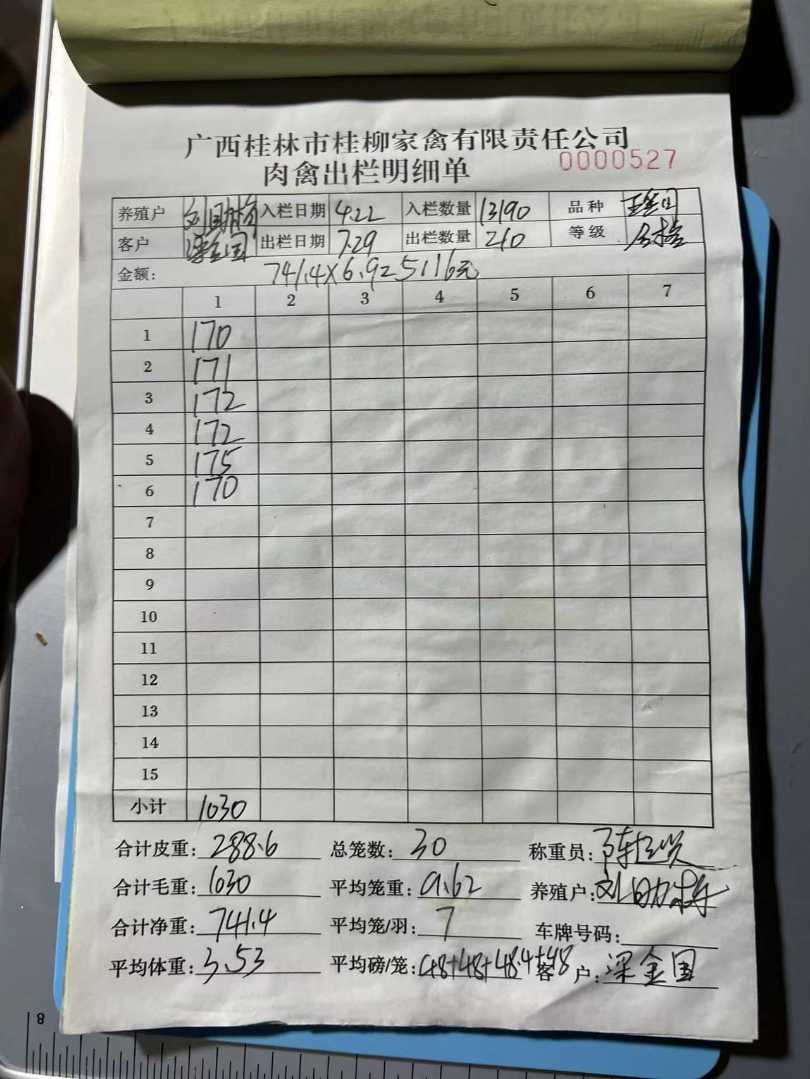 广西桂林市桂柳家禽有限责任公司
0000527
肉禽出栏明细单
养殖户 入栏日期 4.22 入栏数量 13190 品种
客户 梁金国 出栏日期 7.29 出栏数量 210 等级 合格
金额: 741.4×6.9=5116元
1 2 3 4 5 6 7
1 170
2 171
3 172
4 172
5 175
6 170
7
8
9
10
11
12
13
14
15
小计 1030
合计皮重: 288.6 总笼数: 30 称重员:
合计毛重: 1030 平均笼重: 9.62 养殖户:
合计净重: 741.4 平均笼/羽: 7 车牌号码:
平均体重: 3.53 平均磅/笼: 48+48+48.4+48 客户: 梁金国
8